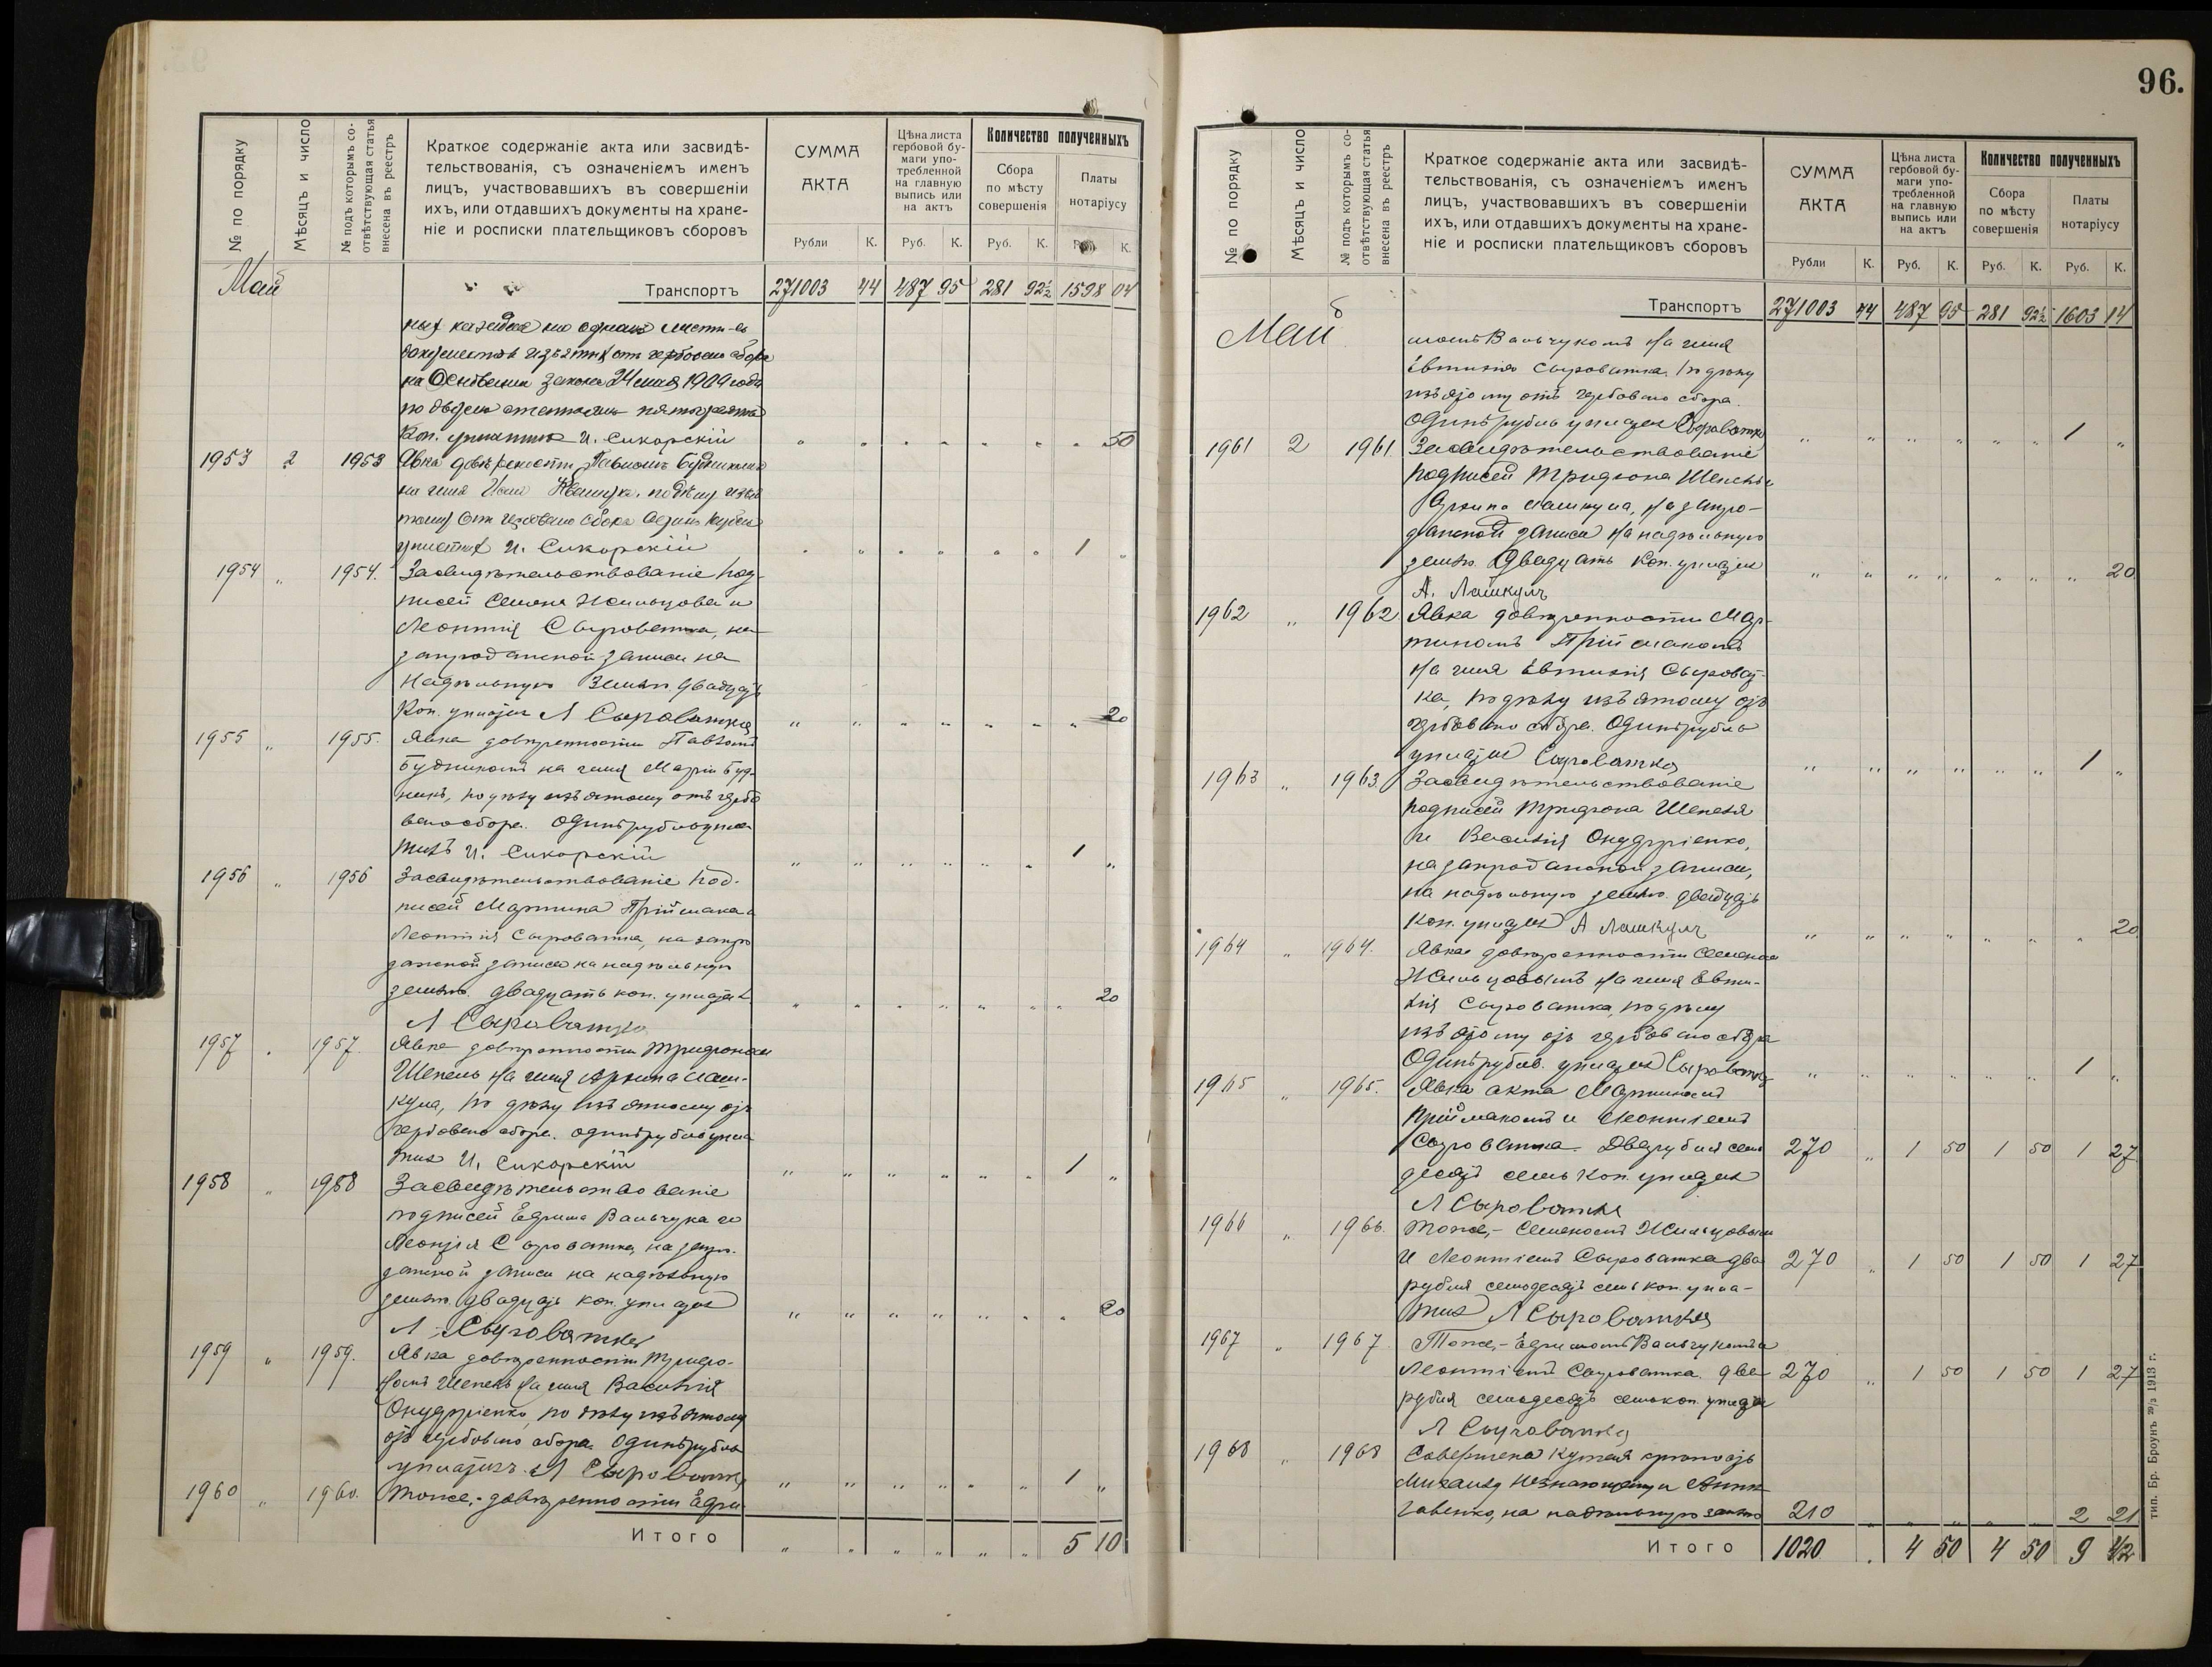 96.
№ по порядку
Мѣсяцъ и число
№ подъ которымъ со-
отвѣтствующая статья
внесена въ реестръ
Краткое содержаніе акта или засвидѣ-
тельствованія, съ означеніемъ именъ
лицъ, участвовавшихъ въ совершеніи
ихъ, или отдавшихъ документы на хране-
ніе и росписки плательщиковъ сборовъ
СУММА
АКТА
Рубли К.
Цѣна листа
гербовой бу-
маги упо-
требленной
на главную
выпись или
на актъ
Руб. К.
Количество полученныхъ
Сбора
по мѣсту
совершенія
Руб. К.
Платы
нотаріусу
К.
Май
Транспортъ 271003 44 487 95 281 92½ 1598 04
на Основаніи закона 24 мая 1909 года
Коп. И. Сикорскій 50
1953 2 1953 Явка довѣренности Павломъ Будникомъ
на имя
сбора Одинъ рубль
И. Сикорскій 1 „
1954 „ 1954. Засвидѣтельствованіе под-
писей Семена Жильцова и
Леонтія Сыроватка, на
запроданной записи на
надѣльную землю двадцать
Коп. уплатил Л Сыроватка 20
1955 „ 1955. Явка довѣренности Павломъ
Будникомъ на имя Маріи Буд-
никъ, по дѣлу изъятому отъ гербо
ваго сбора. Одинъ рубль упла
тилъ И. Сикорскій 1 „
1956 „ 1956 Засвидѣтельствованіе под-
писей Мартина Пріймака и
Леонтія Сыроватка, на запро
данной записи на надѣльную
землю. двадцать коп. уплатил 20
Л Сыроватка
1957 „ 1957. Явка довѣренности Тридрономъ
Шепель на имя Архипа Лаш-
кула, по дѣлу изъятому отъ
гербоваго сбора. одинъ рубль упла
тил И. Сикорскій 1 „
1958 „ 1958 Засвидѣтельствованіе
подписей Ефрима Вальчука и
Леонтія Сыроватка, на запро-
данной записи на надѣльную
землю. двадцать коп. уплатил 20
Л Сыроватка
1959 „ 1959. Явка довѣренности
Шепель на имя Василія
по дѣлу изъятому
отъ гербоваго сбора. Одинъ рубль
уплатилъ. Л Сыроватка 1 „
1960 „ 1960. Тоже,- довѣренности Ефри
Итого „ „ „ „ „ „ 5 10
№ по порядку
Мѣсяцъ и число
№ подъ которымъ со-
отвѣтствующая статья
внесена въ реестръ
Краткое содержаніе акта или засвидѣ-
тельствованія, съ означеніемъ именъ
лицъ, участвовавшихъ въ совершеніи
ихъ, или отдавшихъ документы на хране-
ніе и росписки плательщиковъ сборовъ
СУММА
АКТА
Рубли К.
Цѣна листа
гербовой бу-
маги упо-
требленной
на главную
выпись или
на актъ
Руб. К.
Количество полученныхъ
Сбора
по мѣсту
совершенія
Руб. К.
Платы
нотаріусу
Руб. К.
Май
Транспортъ 271003 44 487 95 281 92½ 1603 14
момъ Вальчукомъ на имя
Евтихія Сыроватка. по дѣлу
изъятому отъ гербоваго сбора.
Одинъ рубль уплатил Сыроватка 1 „
1961 2 1961. Засвидѣтельствованіе
подписей Шепель и
Архипа Лашкула, на запро-
данной записи на надѣльную
землю. Двадцать Коп. уплатил 20
А. Лашкулъ
1962 „ 1962. Явка довѣренности Мар-
тиномъ Пріймакомъ
на имя Евтихія Сыроват-
ка, по дѣлу изъятому отъ
гербоваго сбора. Одинъ рубль
уплатил Сыроватка 1 „
1963 „ 1963. Засвидѣтельствованіе
подписей Шепеля
и Василія
на запроданной записи,
на надѣльную землю. двадцать
коп. уплатил А Лашкулъ 20
1964 „ 1964. Явка довѣренности Семеномъ
Жильцовымъ на имя Евти-
хія Сыроватка, по дѣлу
изъятому отъ гербоваго сбора
Одинъ рубль. уплатил Сыроватка 1 „
1965 „ 1965. Явка акта Мартиномъ
Пріймакомъ и Леонтіемъ
Сыроватка. Два рубля семь 270 „ 1 50 1 50 1 27
десятъ семь коп. уплатил
Л Сыроватка
1966 „ 1966. Тоже,- Семеномъ Жильцовымъ
и Леонтіемъ Сыроватка два 270 „ 1 50 1 50 1 27
рубля семьдесятъ семь коп. упла-
тил Л Сыроватка
1967 „ 1967. Тоже,- Ефримомъ Вальчукомъ и
Леонтіемъ Сыроватка. два 270 „ 1 50 1 50 1 27
рубля семьдесятъ семь коп. уплатил
Л Сыроватка
1968 „ 1968 Совершена Купчая крѣпость
на надѣльную землю 210 2 21
Итого 1020 . 4 50 4 50 9
тип. Бр. Броунъ 1913 г.